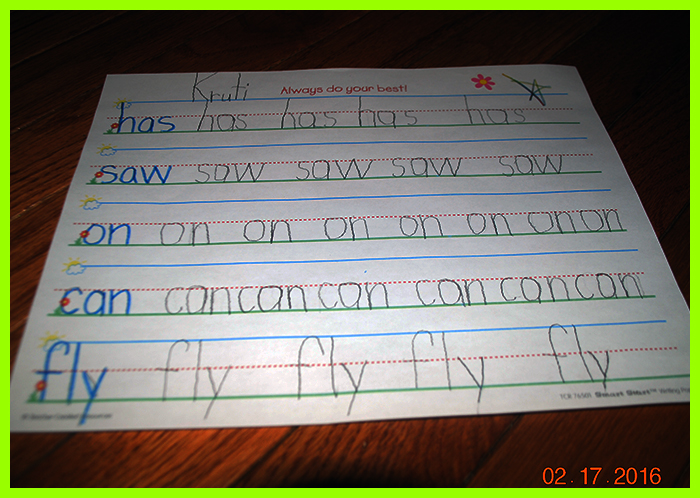 Kruti Always do your best!
has has has has has
saw saw saw saw saw
on on on on on on on on
can can can can can can can
fly fly fly fly fly
© Teacher Created Resources TCR 76501 Smart Start™ Writing
02.17.2016